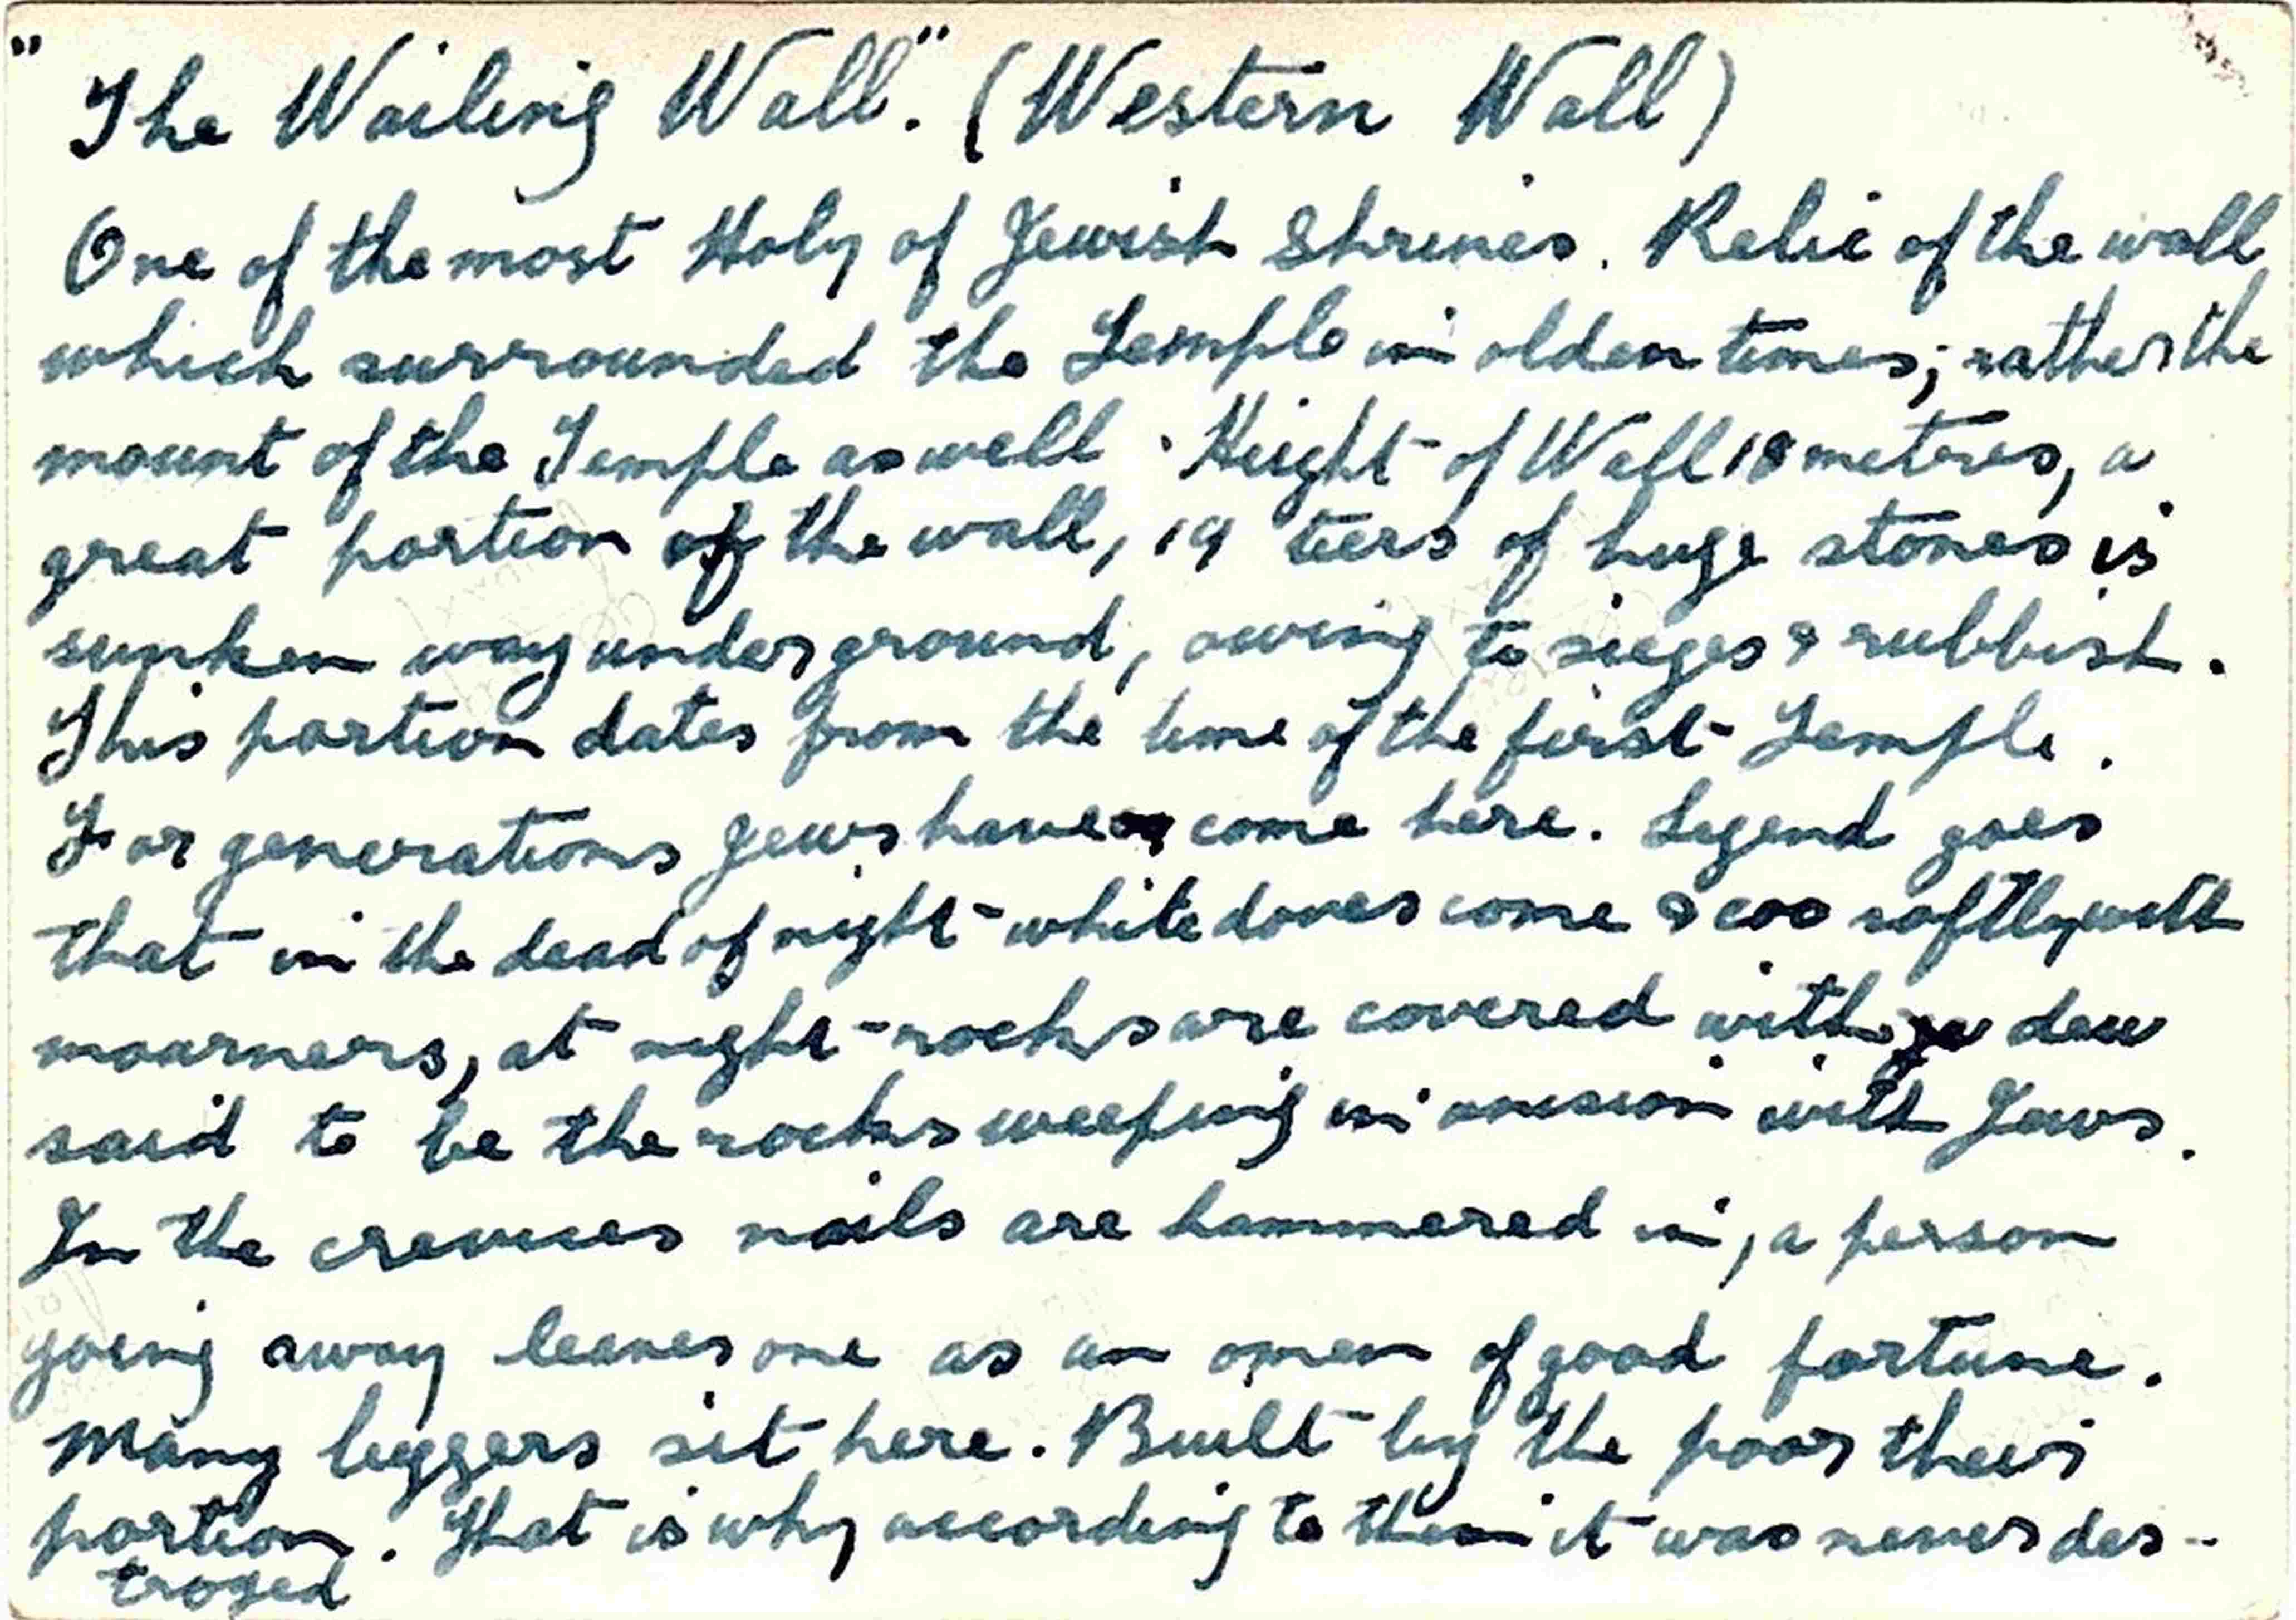 "The Wailing Wall". (Western Wall)
One of the most Holy of Jewish Shrines. Relic of the wall
which surrounded the Temple in olden times; rather the
mount of the Temple as well. Height of Wall 18 metres, a
great portion of the wall, 19 tiers of huge stones is
sunken way underground, owing to sieges & rubbish.
This portion dates from the time of the first Temple.
For generations Jews have come here. Legend goes
that in the dead of night white doves come & coo softly with
mourners, at night rocks are covered with dew
said to be the rocks weeping in unision with Jews.
In the crevices nails are hammered in, a person
going away leaves one as an omen of good fortune.
Many beggers sit here. Built by the poor their
portion. That is why according to them it was never des-
troyed